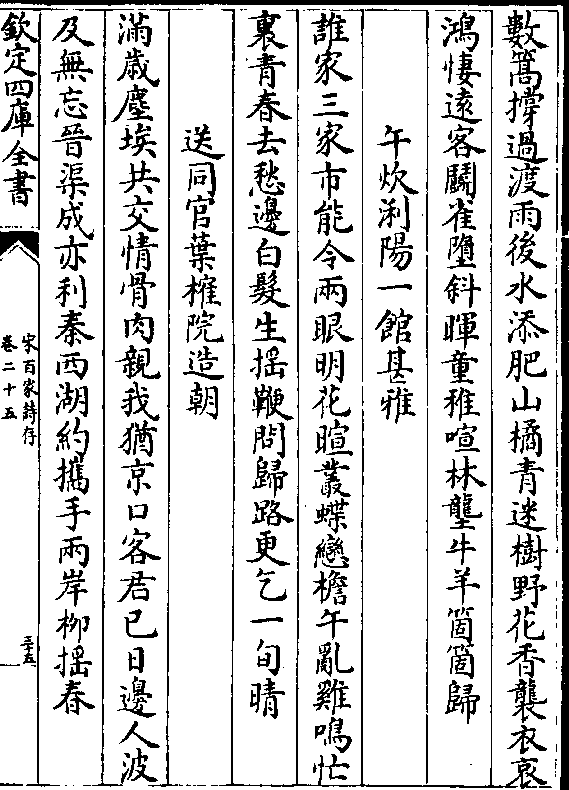 數篙撑過渡雨後水添肥山橘青迷樹野花香襲衣哀
鴻悽逺客鬭雀墮斜暉童稚喧林壟牛羊箇箇歸
午炊浰陽一館甚雅
誰家三家市能令兩眼明花暄叢蝶戀檐午亂雞鳴忙
裏青春去愁邊白髮生揺鞭問歸路更乞一旬晴
送同官葉榷院造朝
滿歳塵埃共交情骨肉親我猶京口客君已日邊人波
及無忘晉渠成亦利秦西湖約攜手兩岸栁揺春
欽定四庫全書
宋百家詩存
卷二十五
三五